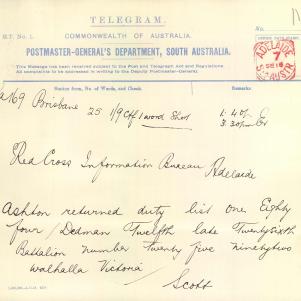 TELEGRAM.
B.T. No. 1.
COMMONWEALTH OF AUSTRALIA.
No.
POSTMASTER-GENERAL'S DEPARTMENT, SOUTH AUSTRALIA.
This Message has been received subject to the Post and Telegraph Act and Regulations.
All complaints to be addressed in writing to the Deputy Postmaster-General.
ADELAIDE
7
Station from, No. of Words, and Check.
Remarks.
a769 Brisbane 25 1/9 Cff 1 word Short
Red Cross Information Bureau Adelaide
Ashton returned duty list one Eighty
four / Dedman Twelfth late Twentysixth
Battalion number twenty five ninetytwo
Walhalla Victoria /
Scott